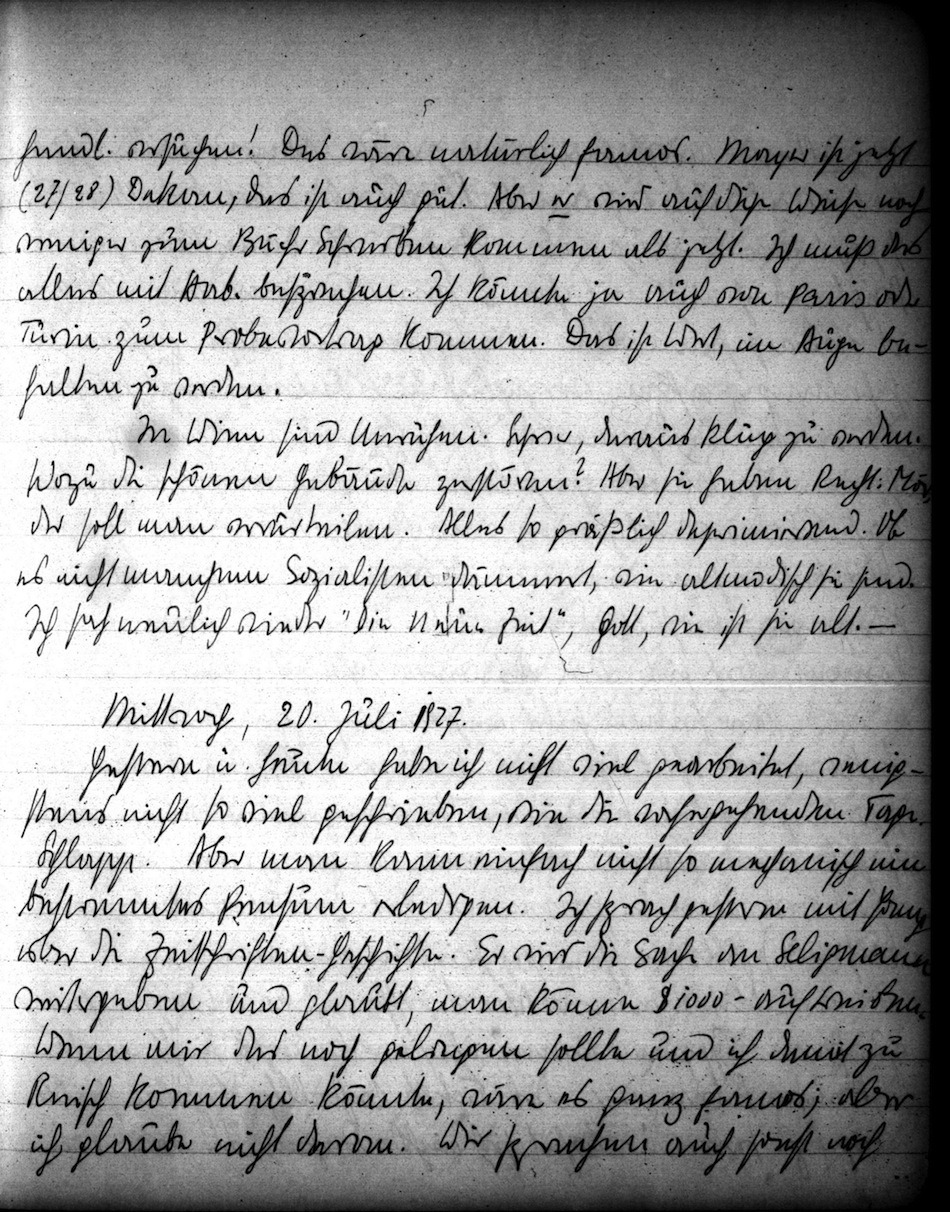 handl. ersuchen! Das wäre natürlich famos. Mayer ist jetzt
(27/28) Dekan, das ist auch gut. Aber er wird auf diese Weise noch
weniger zum Bücher Schreiben kommen als jetzt. Ich muß das
alles mit besprechen. Ich könnte ja auch von Paris oder
Turin zum Probevortrag kommen. Das ist Wert, im Auge be-
halten zu werden.
In Wien sind Unruhen. Schwer, daraus klug zu werden.
Wozu die schönen Gebäude zerstören? Aber sie haben Recht: Mör-
der soll man verurteilen. Alles so gräßlich deprimierend. Ob
es nicht manchem Sozialisten dämmert, wie altmodisch sie sind.
Ich sah neulich wieder "Die Neue Zeit", Gott, wie ist sie alt. —
Mittwoch, 20. Juli 1927.
Gestern u. heute habe ich nicht viel gearbeitet, wenig-
stens nicht so viel geschrieben, wie die vorhergehenden Tage.
Schlapp. Aber man kann einfach nicht so mechanisch ein
bestimmtes Pensum erledigen. Ich sprach gestern mit
über die Zeitschriften-Geschichte. Er wird die Sache an Seligmann
weitergeben und glaubt, man könne $1000 - auftreiben.
Wenn mir das noch gelingen sollte und ich damit zu
Reisch kommen könnte, wäre es ganz famos; aber
ich glaube nicht daran. Wir sprachen auch sonst noch